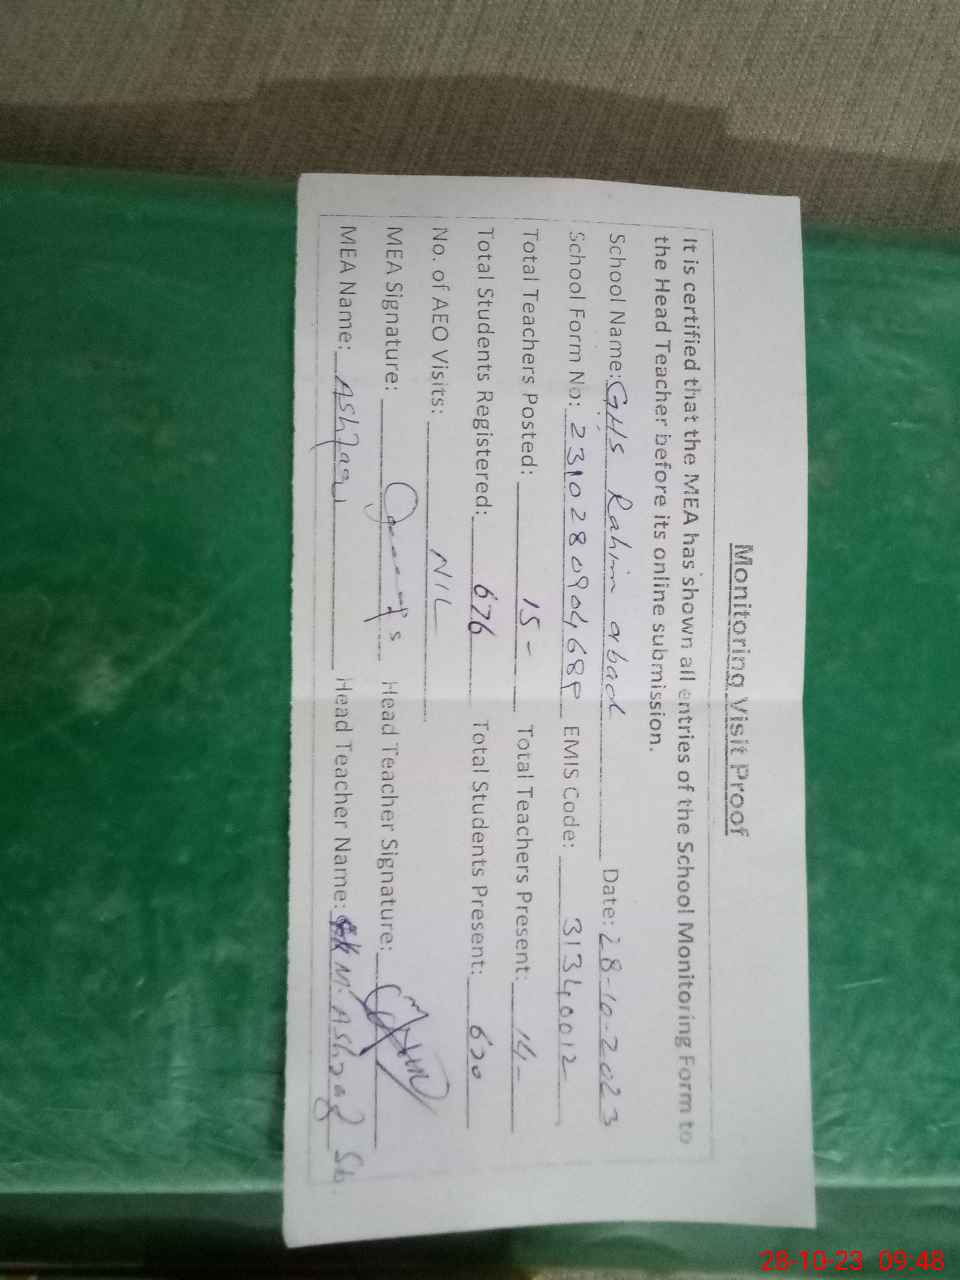 Monitoring Visit Proof
It is certified that the MEA has shown all entries of the School Monitoring Form to
the Head Teacher before its online submission.
School Name: GHS Rahim abad Date: 28-10-2023
School Form No: 231028090468 EMIS Code: 31340012
Total Teachers Posted: 15- Total Teachers Present: 14-
Total Students Registered: 676 Total Students Present: 620
No. of AEO Visits: NIL
MEA Signature: Head Teacher Signature:
MEA Name: Ashfaq Head Teacher Name: M. Ashraf Sb.
28-10-23 09:48